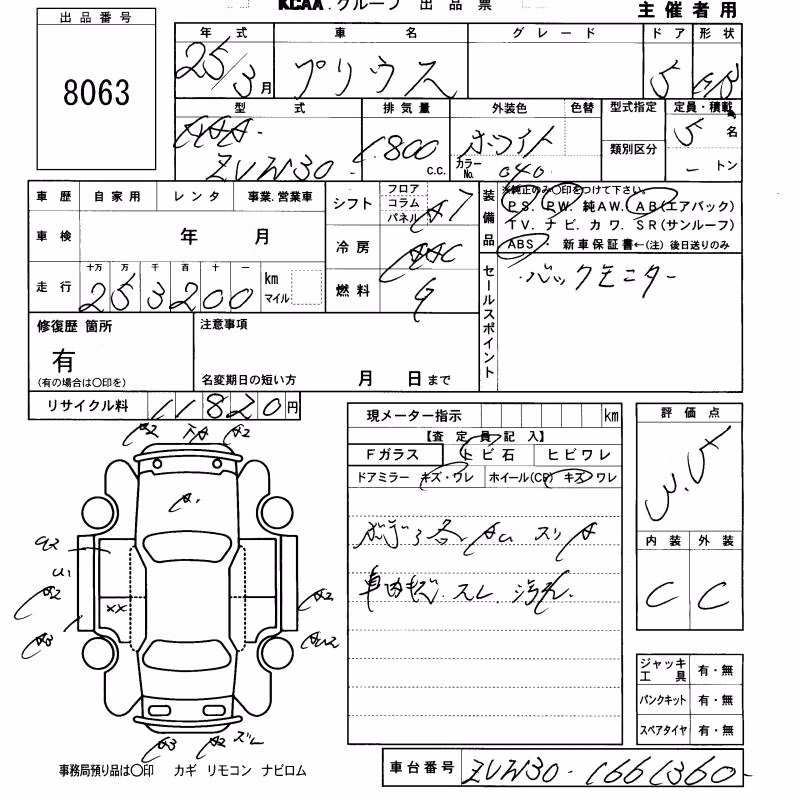 KCAA.グループ 出品票
主催者用
出品番号
8063
年式 車名 グレード ドア 形状
25/3月 プリウス 5 HB
型式 排気量 外装色 色替 型式指定 定員・積載
ZVW30 1,800 c.c. ホワイト カラーNo. 040 類別区分 5名 - トン
車歴 自家用 レンタ 事業.営業車
車検 年 月
走行 十万 万 千 百 十 一 km マイル
253200
シフト フロア コラム パネル A7
冷房 AAC
燃料 G
装備品
※純正のみ〇印をつけて下さい。
PS. PW. 純AW. AB(エアバック)
TV. ナビ. カワ. SR(サンルーフ)
ABS. 新車保証書←(注)後日送りのみ
セールスポイント
・バックモニター
修復歴 箇所
有
(有の場合は〇印を)
注意事項
名変期日の短い方 月 日まで
リサイクル料 11820円
現メーター指示 km
【査定員記入】
Fガラス トビ石 ヒビワレ
ドアミラー キズ・ワレ ホイール(CP) キズ ワレ
ボディ各 AU スリA
車内キズ. スレ. 汚れ.
評価点
3.5
内装 外装
C C
A2 A2
A1
A2
U1
A2
XX
A3
A2
AU2
A3 A2 スレ
ジャッキ工具 有・無
パンクキット 有・無
スペアタイヤ 有・無
事務局預り品は〇印 カギ リモコン ナビロム
車台番号 ZVW30-1661360-